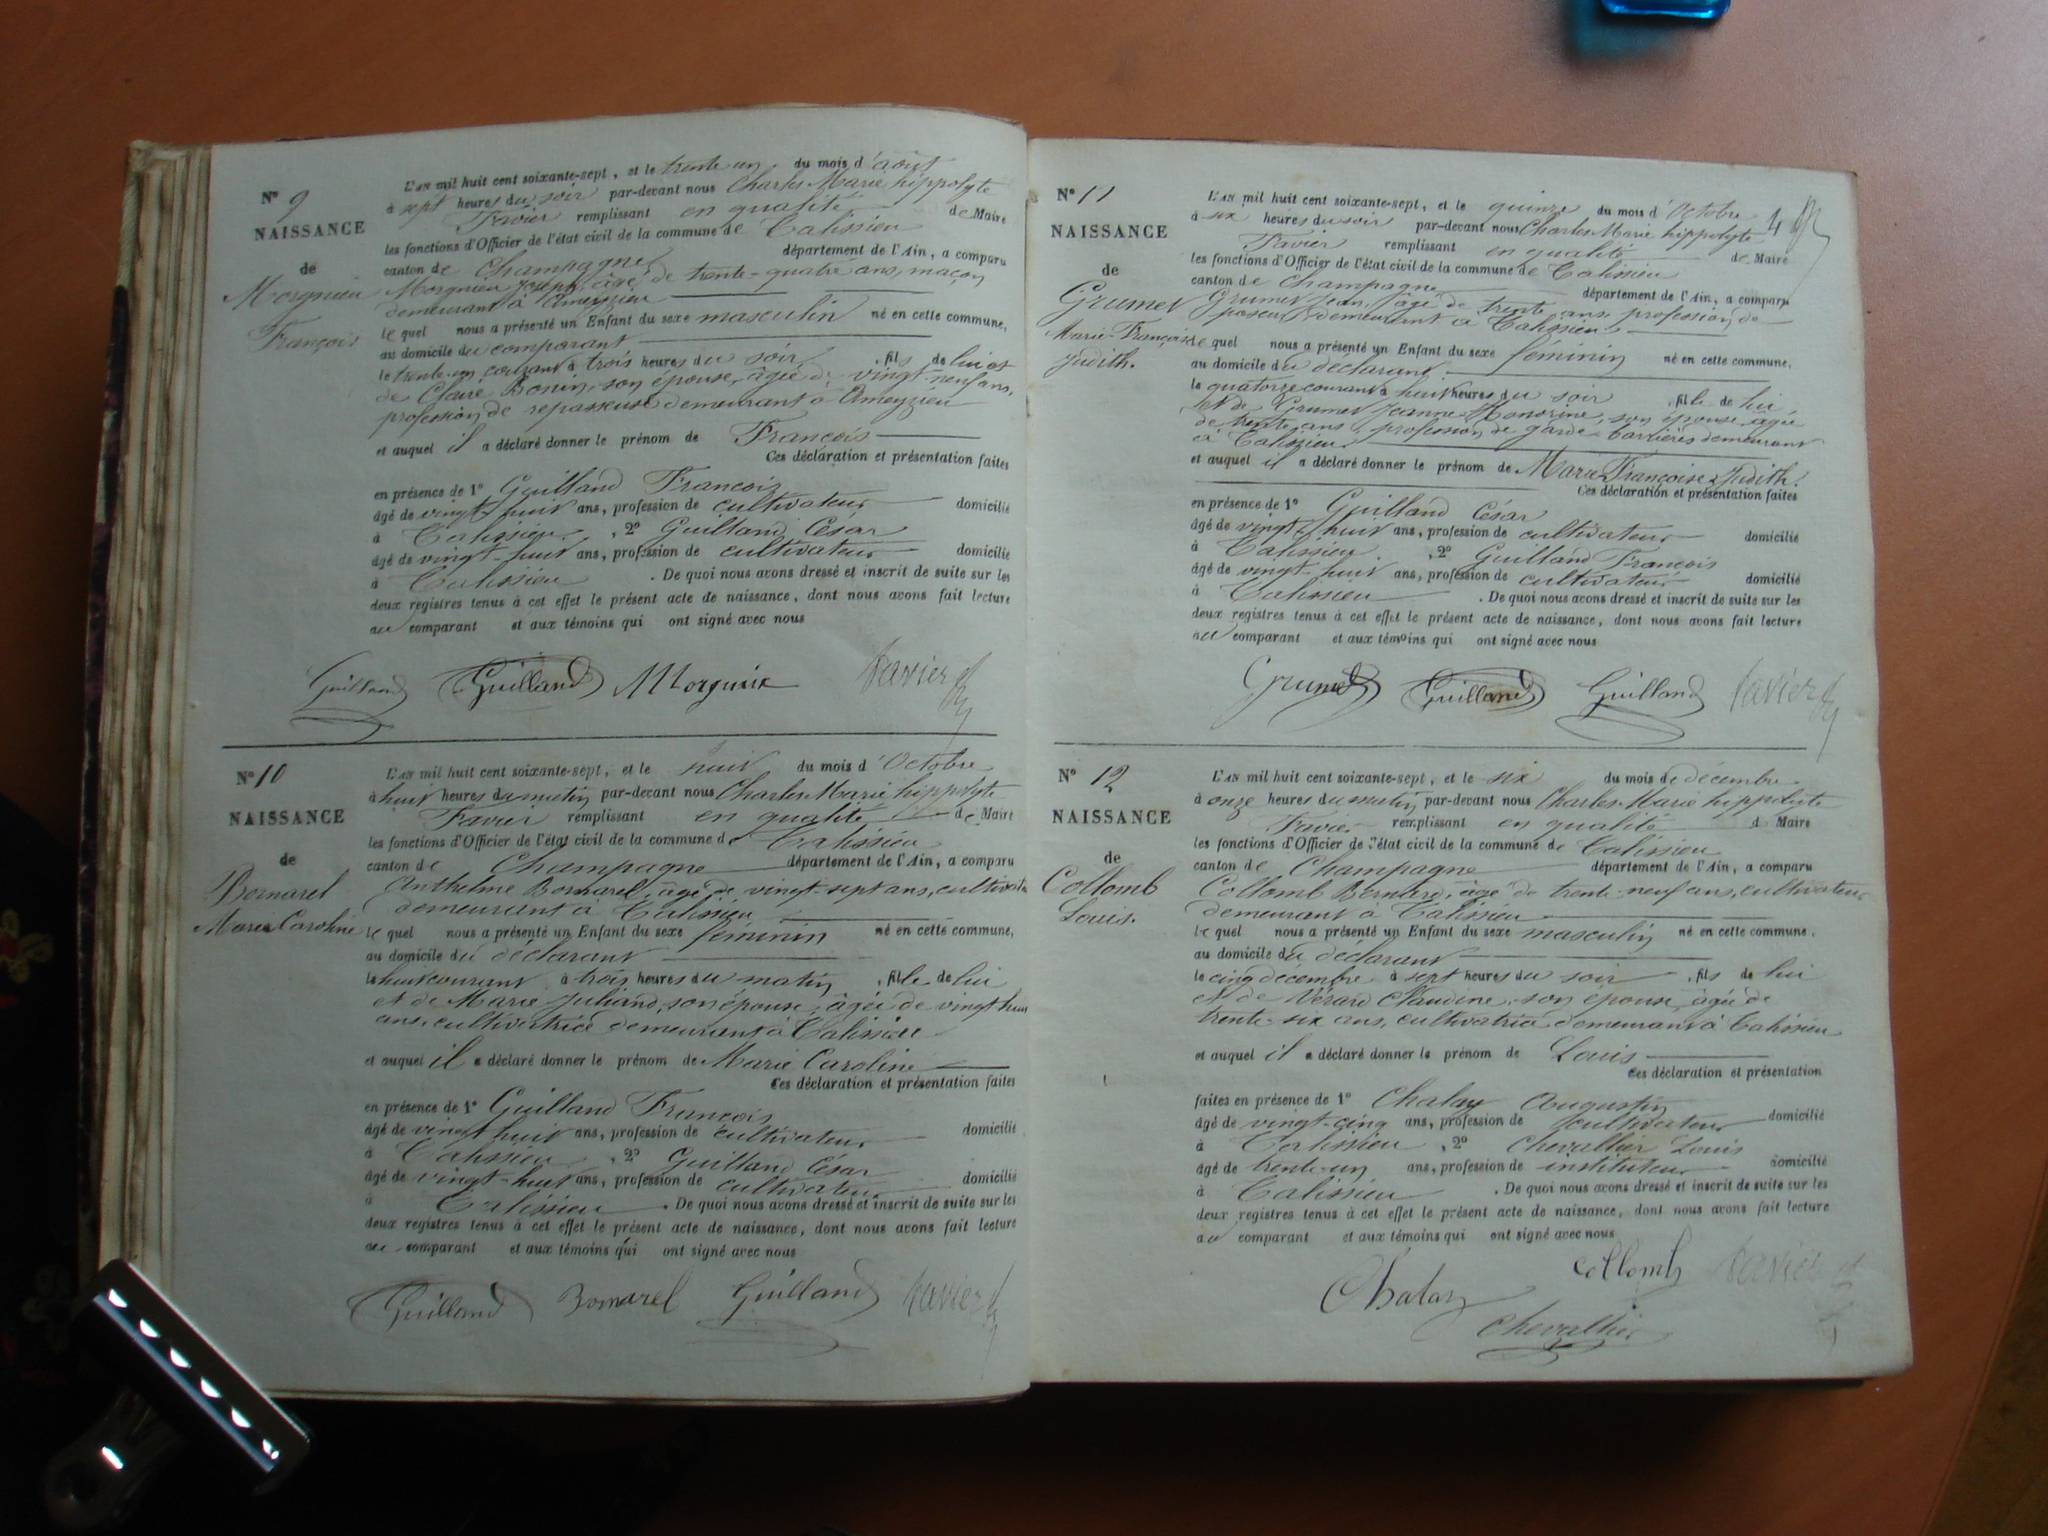 N° 9
NAISSANCE
de
Morgnieu
François
L'AN mil huit cent soixante-sept, et le trente un du mois d'août
à sept heures du soir par-devant nous Charles Marie hippolyte
Favier remplissant en qualité de Maire
les fonctions d'Officier de l'état civil de la commune de Talissieu
canton de Champagne département de l'Ain, a comparu
Morgnieu Joseph, âgé de trente-quatre ans, maçon
demeurant à Ameyzieu
lequel nous a présenté un Enfant du sexe masculin né en cette commune,
au domicile du comparant
le trente-un courant à trois heures du soir, fils de lui et
de Claire Bonin, son épouse, âgée de vingt-neuf ans,
profession de repasseuse demeurant à Ameyzieu
et auquel il a déclaré donner le prénom de François
Ces déclaration et présentation faites
en présence de 1° Guilland François
âgé de vingt-huit ans, profession de cultivateur domicilié
à Talissieu, 2° Guilland César
âgé de vingt-huit ans, profession de cultivateur domicilié
à Talissieu. De quoi nous avons dressé et inscrit de suite sur les
deux registres tenus à cet effet le présent acte de naissance, dont nous avons fait lecture
au comparant et aux témoins qui ont signé avec nous
Guilland Guilland Morgnieux Favier
N° 10
NAISSANCE
de
Bornarel
Marie Caroline
L'AN mil huit cent soixante-sept, et le huit du mois d'Octobre
à huit heures du matin par-devant nous Charles Marie hippolyte
Favier remplissant en qualité de Maire
les fonctions d'Officier de l'état civil de la commune de Talissieu
canton de Champagne département de l'Ain, a comparu
Anthelme Bornarel, âgé de vingt-sept ans, cultivateur
demeurant à Talissieu
lequel nous a présenté un Enfant du sexe féminin né en cette commune,
au domicile du déclarant
le huit courant à trois heures du matin, fille de lui
et de Marie Juliand, son épouse, âgée de vingt huit
ans, cultivatrice demeurant à Talissieu
et auquel il a déclaré donner le prénom de Marie Caroline
Ces déclaration et présentation faites
en présence de 1° Guilland François
âgé de vingt huit ans, profession de cultivateur domicilié
à Talissieu, 2° Guilland César
âgé de vingt-huit ans, profession de cultivateur domicilié
à Talissieu. De quoi nous avons dressé et inscrit de suite sur les
deux registres tenus à cet effet le présent acte de naissance, dont nous avons fait lecture
au comparant et aux témoins qui ont signé avec nous
Guilland Bornarel Guilland Favier
4
N° 11
NAISSANCE
de
Grumet
Marie-Françoise
Judith.
L'AN mil huit cent soixante-sept, et le quinze du mois d'Octobre
à six heures du soir par-devant nous Charles Marie hippolyte
Favier remplissant en qualité de Maire
les fonctions d'Officier de l'état civil de la commune de Talissieu
canton de Champagne département de l'Ain, a comparu
Grumet Jean, âgé de trente ans, profession de
poseur, demeurant à Talissieu
lequel nous a présenté un Enfant du sexe féminin né en cette commune,
au domicile du déclarant
le quatorze courant à huit heures du soir, fille de lui
et de Grumet Jeanne Honorine, son épouse, âgée
de trente ans, profession de garde-barrières demeurant
à Talissieu
et auquel il a déclaré donner le prénom de Marie Françoise Judith.
Ces déclaration et présentation faites
en présence de 1° Guilland César
âgé de vingt-huit ans, profession de cultivateur domicilié
à Talissieu, 2° Guilland François
âgé de vingt-huit ans, profession de cultivateur domicilié
à Talissieu. De quoi nous avons dressé et inscrit de suite sur les
deux registres tenus à cet effet le présent acte de naissance, dont nous avons fait lecture
au comparant et aux témoins qui ont signé avec nous
Grumet Guilland Guilland Favier
N° 12
NAISSANCE
de
Collomb
Louis.
L'AN mil huit cent soixante-sept, et le six du mois de décembre
à onze heures du matin par-devant nous Charles Marie hippolyte
Favier remplissant en qualité de Maire
les fonctions d'Officier de l'état civil de la commune de Talissieu
canton de Champagne département de l'Ain, a comparu
Collomb Bernard, âgé de trente-neuf ans, cultivateur
demeurant à Talissieu
lequel nous a présenté un Enfant du sexe masculin né en cette commune,
au domicile du déclarant
le cinq décembre à sept heures du soir, fils de lui
et de Vérard Claudine, son épouse âgée de
trente-six ans, cultivatrice demeurant à Talissieu
et auquel il a déclaré donner le prénom de Louis
Ces déclaration et présentation
faites en présence de 1° Chalay Augustin
âgé de vingt-cinq ans, profession de cultivateur domicilié
à Talissieu, 2° Chevallier Louis
âgé de trente-un ans, profession de instituteur domicilié
à Talissieu. De quoi nous avons dressé et inscrit de suite sur les
deux registres tenus à cet effet le présent acte de naissance, dont nous avons fait lecture
au comparant et aux témoins qui ont signé avec nous
Chalay Collomb Favier
Chevallier